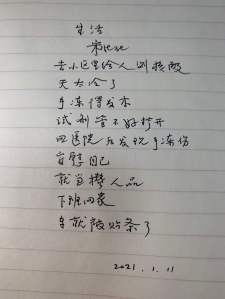 生活
去小区里给人测核酸
天太冷了
手冻僵发木
试剂管不好打开
回医院后发现手冻伤
自慰自己
就当攒人品
下班回家
车就被贴条了
2021.1.11